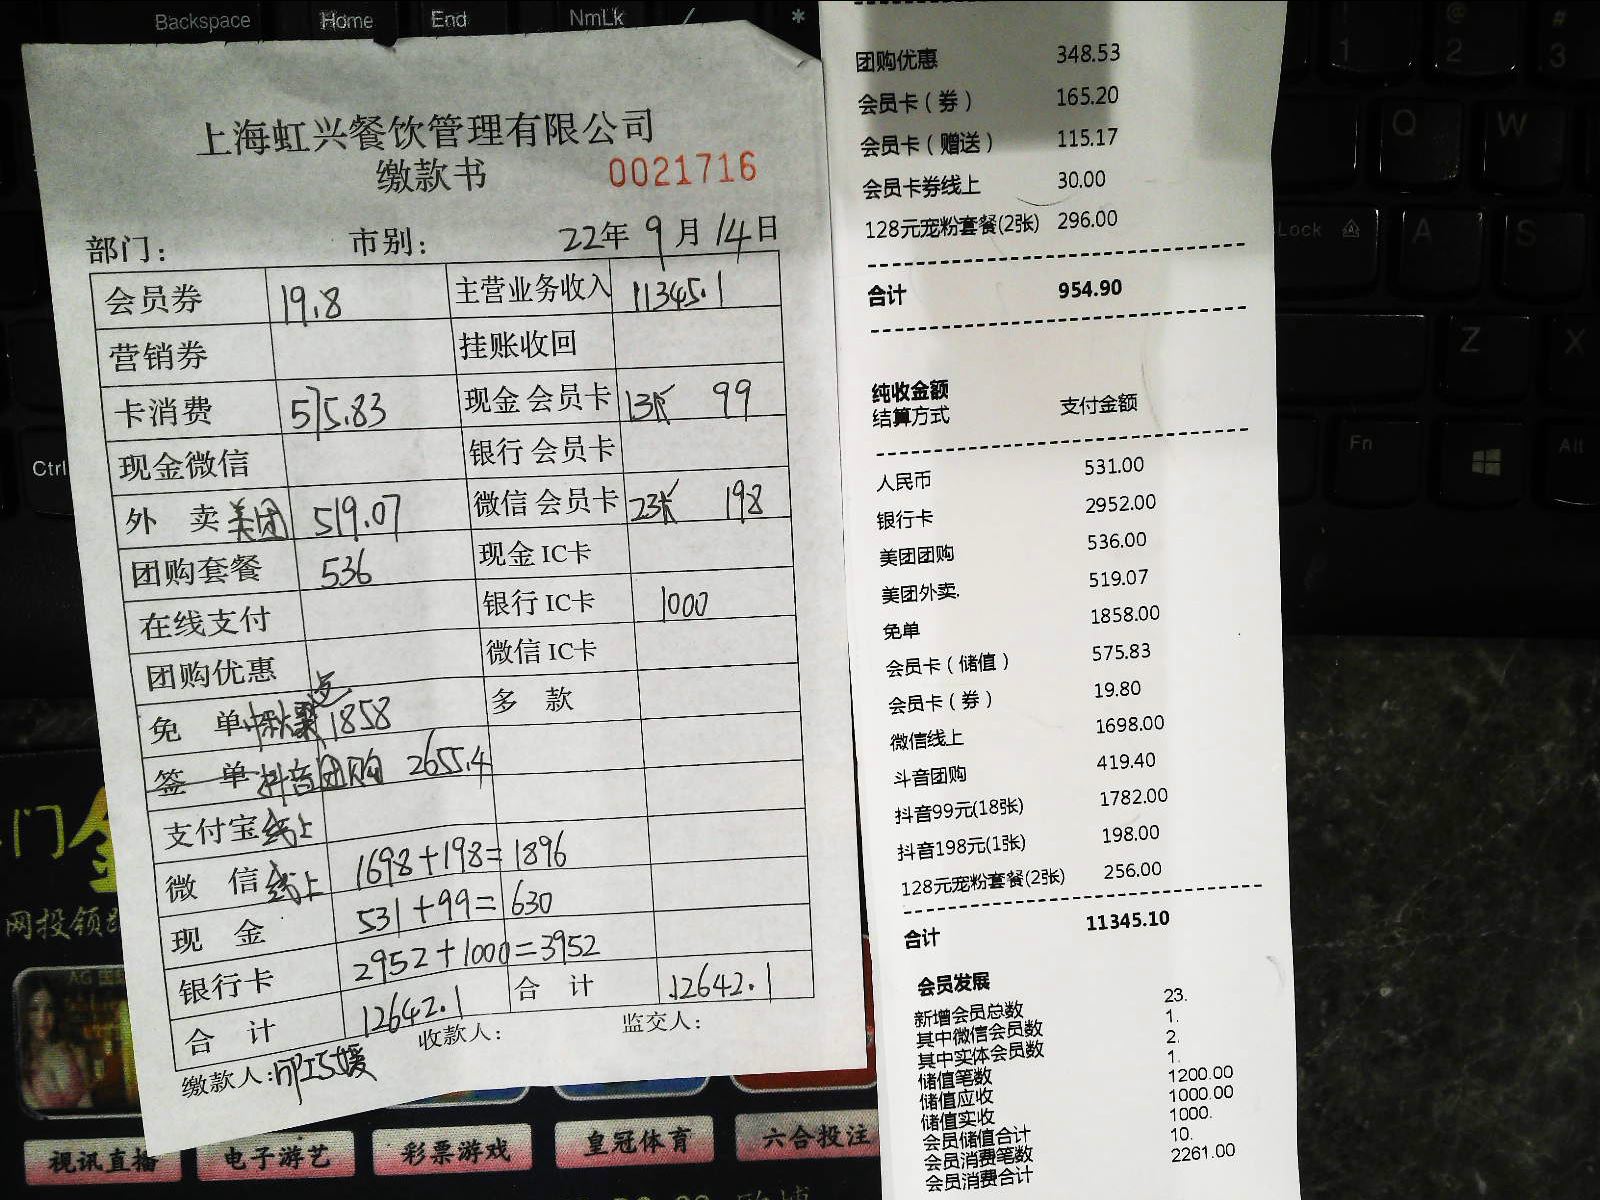 Backspace Home End NmLk / *
上海虹兴餐饮管理有限公司
缴款书 0021716
部门： 市别： 22年 9月 14日
会员券 19.8 主营业务收入 11345.1
营销券 挂账收回
卡消费 575.83 现金 会员卡 1张 99
现金微信 银行 会员卡
外 卖 美团 519.07 微信 会员卡 2张 198
团购套餐 536 现金 IC卡
在线支付 银行 IC卡 1000
团购优惠 微信 IC卡
免 单 1858 多 款
签 单 抖音团购 2655.4
支付宝 线上
微 信 线上 1698+198=1896
现 金 531+99=630
银行卡 2952+1000=3952
合 计 12642.1 合 计 12642.1
缴款人: 收款人： 监交人：
团购优惠 348.53
会员卡（券） 165.20
会员卡（赠送） 115.17
会员卡券线上 30.00
128元宠粉套餐(2张) 296.00
合计 954.90
纯收金额
结算方式 支付金额
人民币 531.00
银行卡 2952.00
美团团购 536.00
美团外卖. 519.07
免单 1858.00
会员卡（储值） 575.83
会员卡（券） 19.80
微信线上 1698.00
斗音团购 419.40
抖音99元(18张) 1782.00
抖音198元(1张) 198.00
128元宠粉套餐(2张) 256.00
合计 11345.10
会员发展
新增会员总数 23.
其中微信会员数 1.
其中实体会员数 2.
储值笔数 1.
储值应收 1200.00
储值实收 1000.00
会员储值合计 1000.
会员消费笔数 10.
会员消费合计 2261.00
1 @ 2 # 3
Q W
Lock A A S
Z X
Ctrl Fn Alt
门金
网投领
AG
视讯直播 电子游艺 彩票游戏 皇冠体育 六合投注